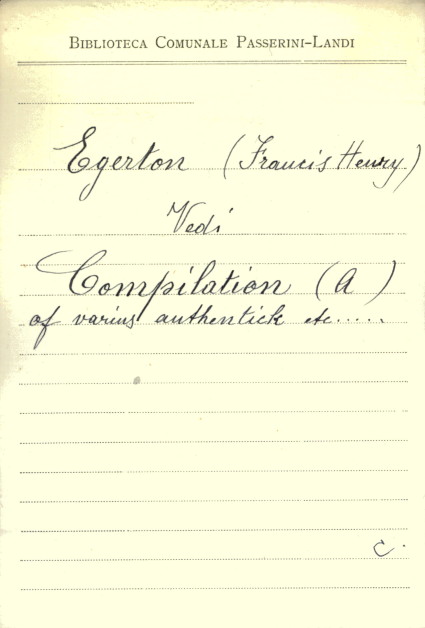 BIBLIOTECA COMUNALE PASSERINI-LANDI
Egerton (Francis Henry)
Vedi
Compilation (A)
of varius authentick etc.....
C.